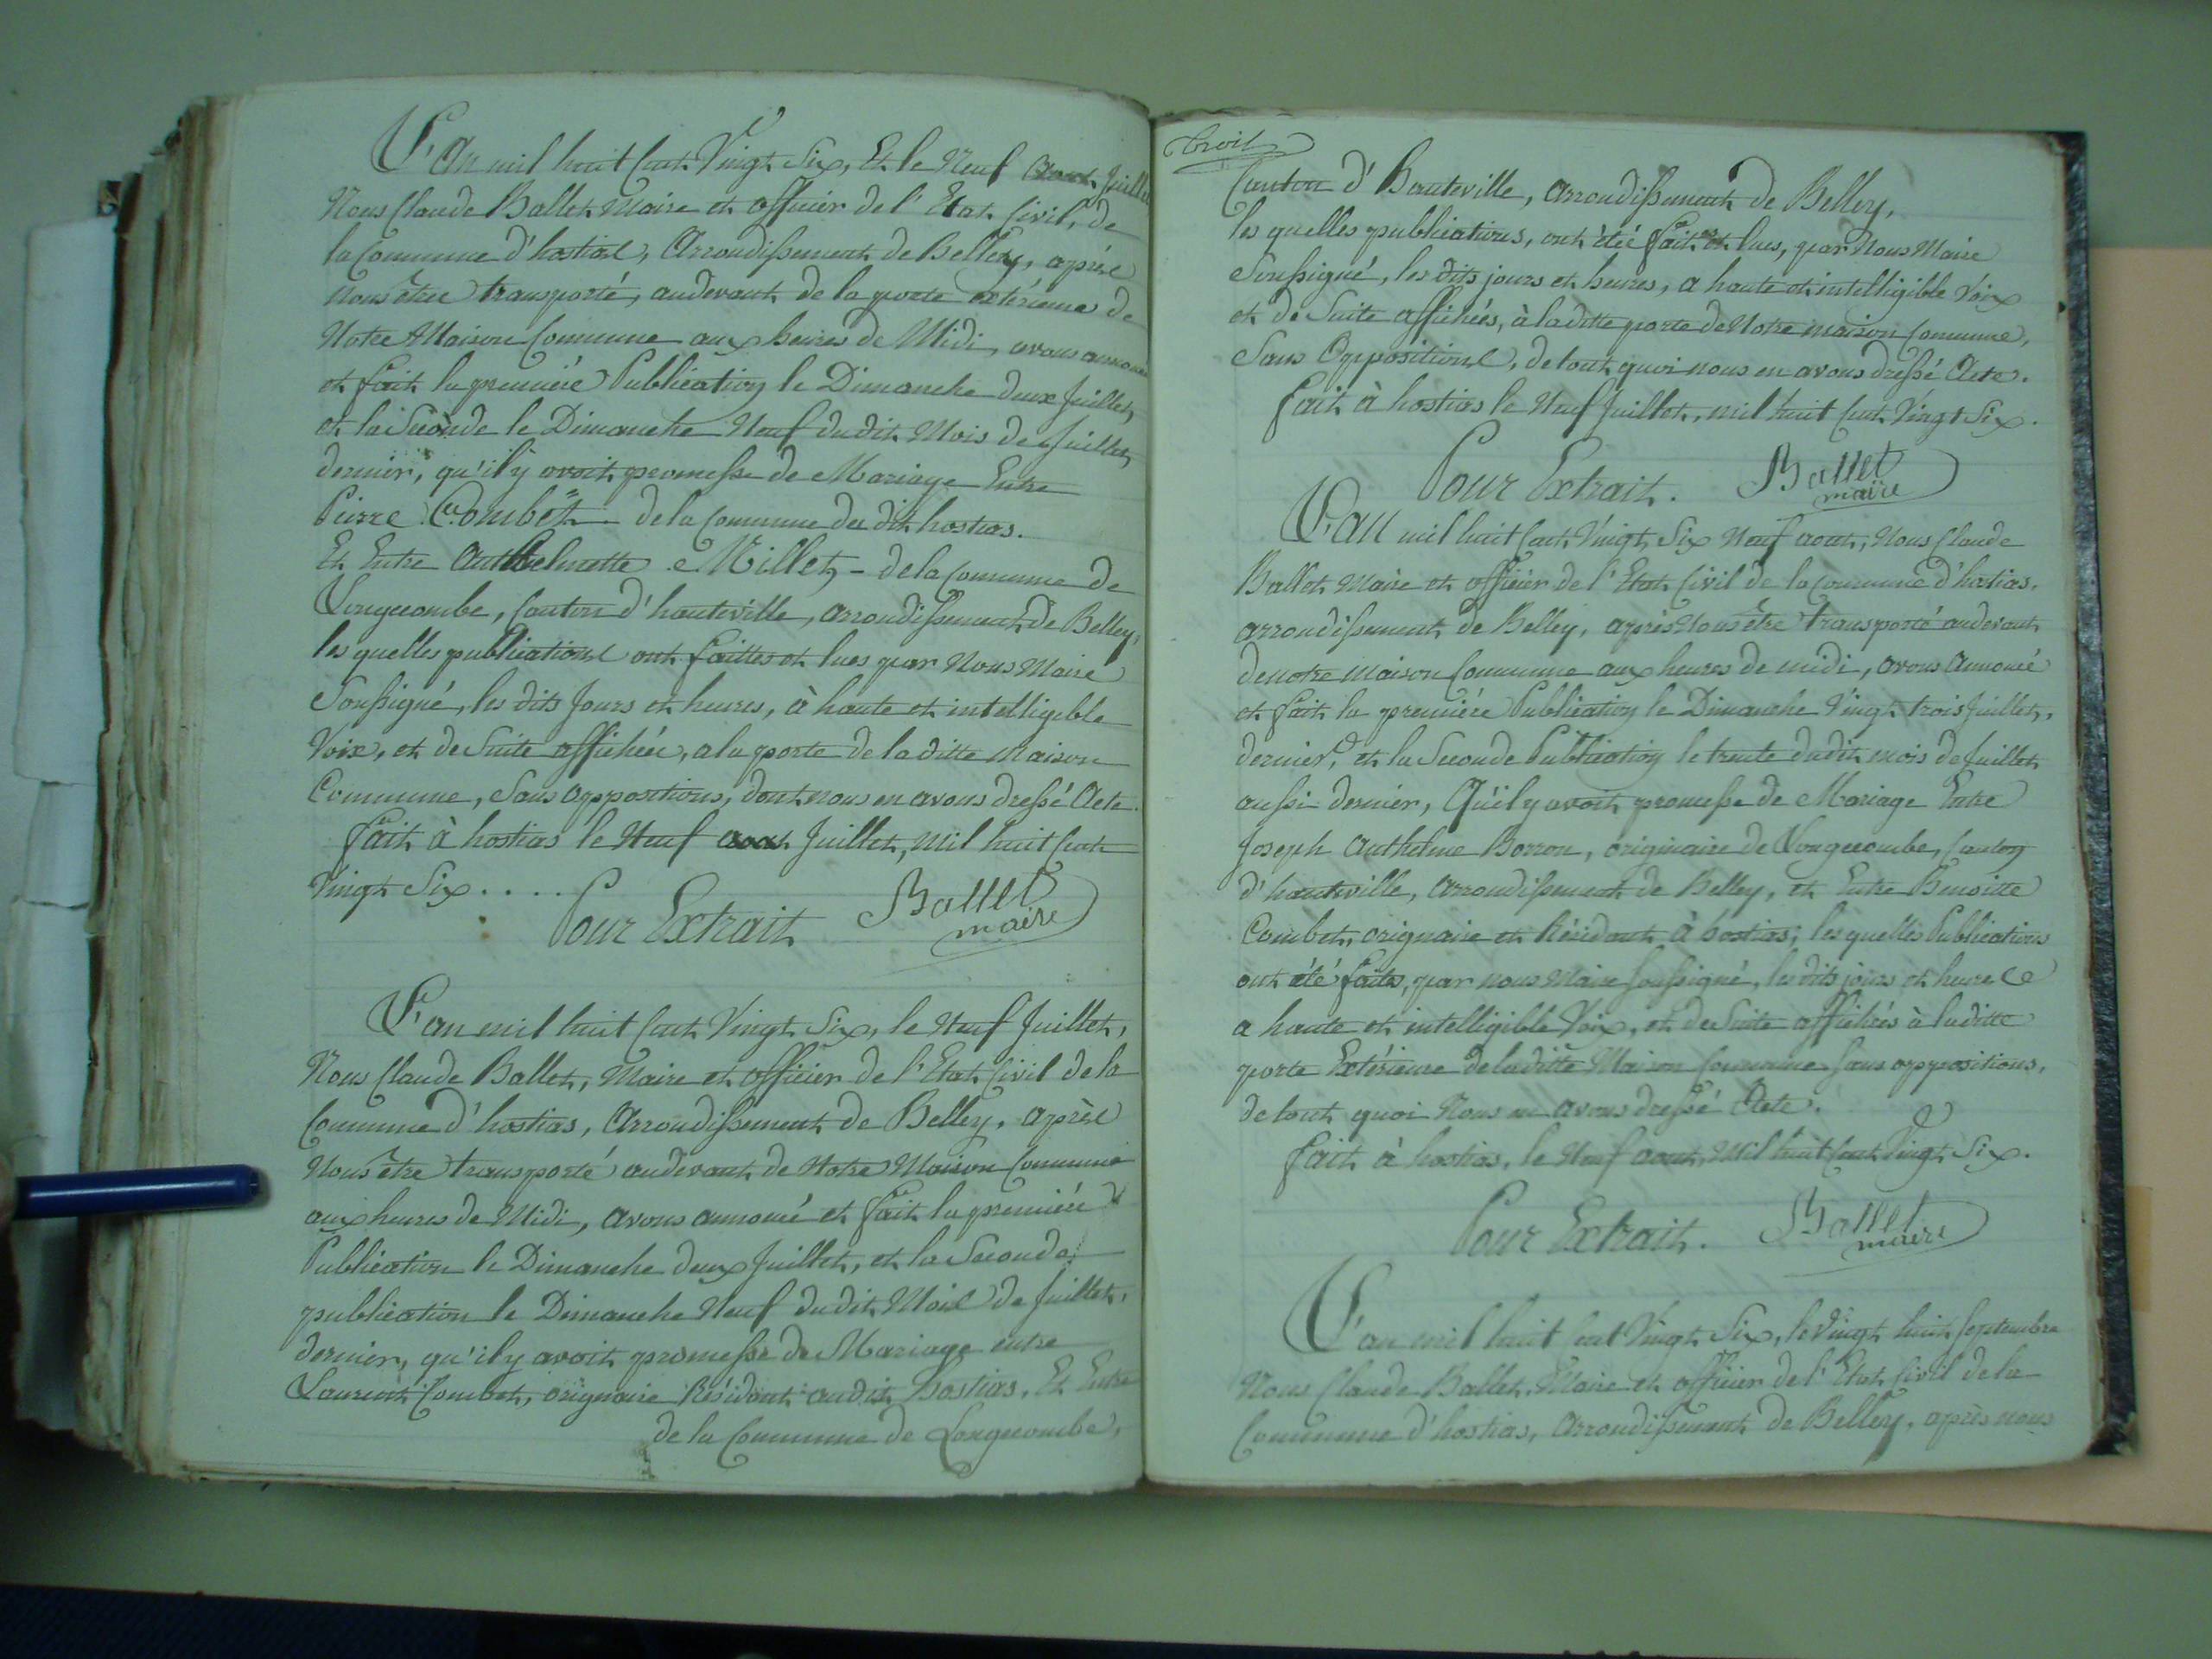 L'an mil huit Cent Vingt Six, Et le Neuf Juillet
Nous Claude Ballet Maire et officier de l'Etat Civil, de
la Commune d'hostias, Arrondissement de Belley, après
nous être transporté, audevant de la porte extérieure de
Notre Maison Commune aux heures de Midi, avons annoncé
et fait la premiére Publication le Dimanche deux Juillet,
et la Seconde le Dimanche Neuf dudit Mois de Juillet,
dernier, qu'il y avoit promesse de Mariage Entre
Pierre Combet de la Commune du dit hostias.
Et Entre Anthelmette Millet, - de la Commune de
Longecombe, Canton d'hauteville, arrondissement de Belley,
les quelles publications ont faittes et lues par Nous Maire
Soussigné, les dits Jours et heures, à haute et intelligible
Voix, et de Suite affichée, a la porte de la ditte Maison
Commune, Sans oppositions, dont nous en avons dressé Acte.
fait à hostias le Neuf aout Juillet, mil huit Cent
Vingt Six.....
Pour Extrait Ballet
maire
L'an mil huit Cent Vingt Six, le Neuf Juillet,
Nous Claude Ballet, Maire et officier de l'Etat Civil de la
Commune d'hostias, Arrondissement de Belley, après
Nous être transporté audevant de Notre Maison Commune
aux heures de Midi, avons annoncé et fait la premiére
Publication le Dimanche deux Juillet, et la Seconde
publication le Dimanche Neuf dudit Mois de Juillet,
dernier, qu'il y avoit promesse de Mariage entre
Laurent Combet, orignaire Résidant audit hostias, Et Entre
de la Commune de Longecombe,
Canton d'hauteville, arrondissement de Belley,
les quelles publications, ont été fait et lues, par Nous Maire
Soussigné, les dits jours et heures, a haute et intelligible Voix
et de Suite affichées, à la ditte porte de Notre maison Commune,
Sans Oppositions, de tout quoi nous en avons dressé Acte.
fait à hostias le Neuf Juillet, mil huit Cent Vingt Six.
Pour Extrait. Ballet
maire
L'an mil huit Cent Vingt Six Neuf aout, Nous Claude
Ballet Maire et officier de l'Etat Civil de la Commune d'hostias,
arrondissement de Belley, après Nous être transporté audevant
de notre maison Commune aux heures de midi, avons annoncé
et fait la premiére Publication le Dimanche Vingt trois Juillet,
dernier, et la Seconde Publication le trente dudit mois de Juillet
aussi dernier, Qu'il y avoit promesse de Mariage Entre
Joseph Anthelme Borron, originaire de Longecombe, Canton
d'hauteville, arrondissement de Belley, et Entre Benoitte
Combet, orignaire et Résidant à hostias; les quelles Publications
ont été faites, par nous Maire Soussigné, les dits jours et heures
a haute et intelligible Voix, et de Suite affichés à la ditte
porte Extérieure de la ditte Maison Commune Sans oppositions,
de tout quoi Nous en avons dressé Acte.
fait à hostias, le Neuf aout, Mil huit Cent Vingt Six.
Pour Extrait. Ballet
maire
L'an mil huit Cent Vingt Six, le Vingt huit Septembre
Nous Claude Ballet, Maire et officier de l'Etat Civil de la
Commune d'hostias, arrondissement de Belley, après nous